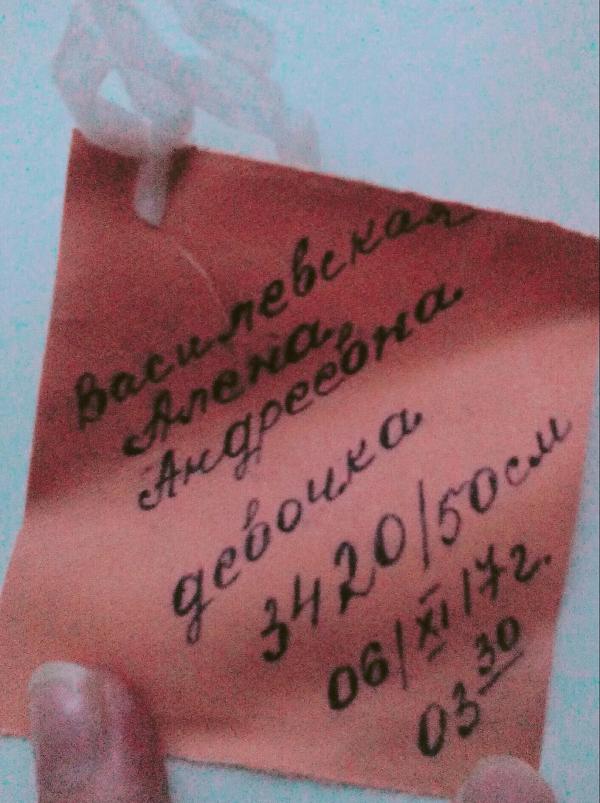 Василевская
Алена,
Андреевна
девочка
3420/50см
06/XI/17г.
03 30